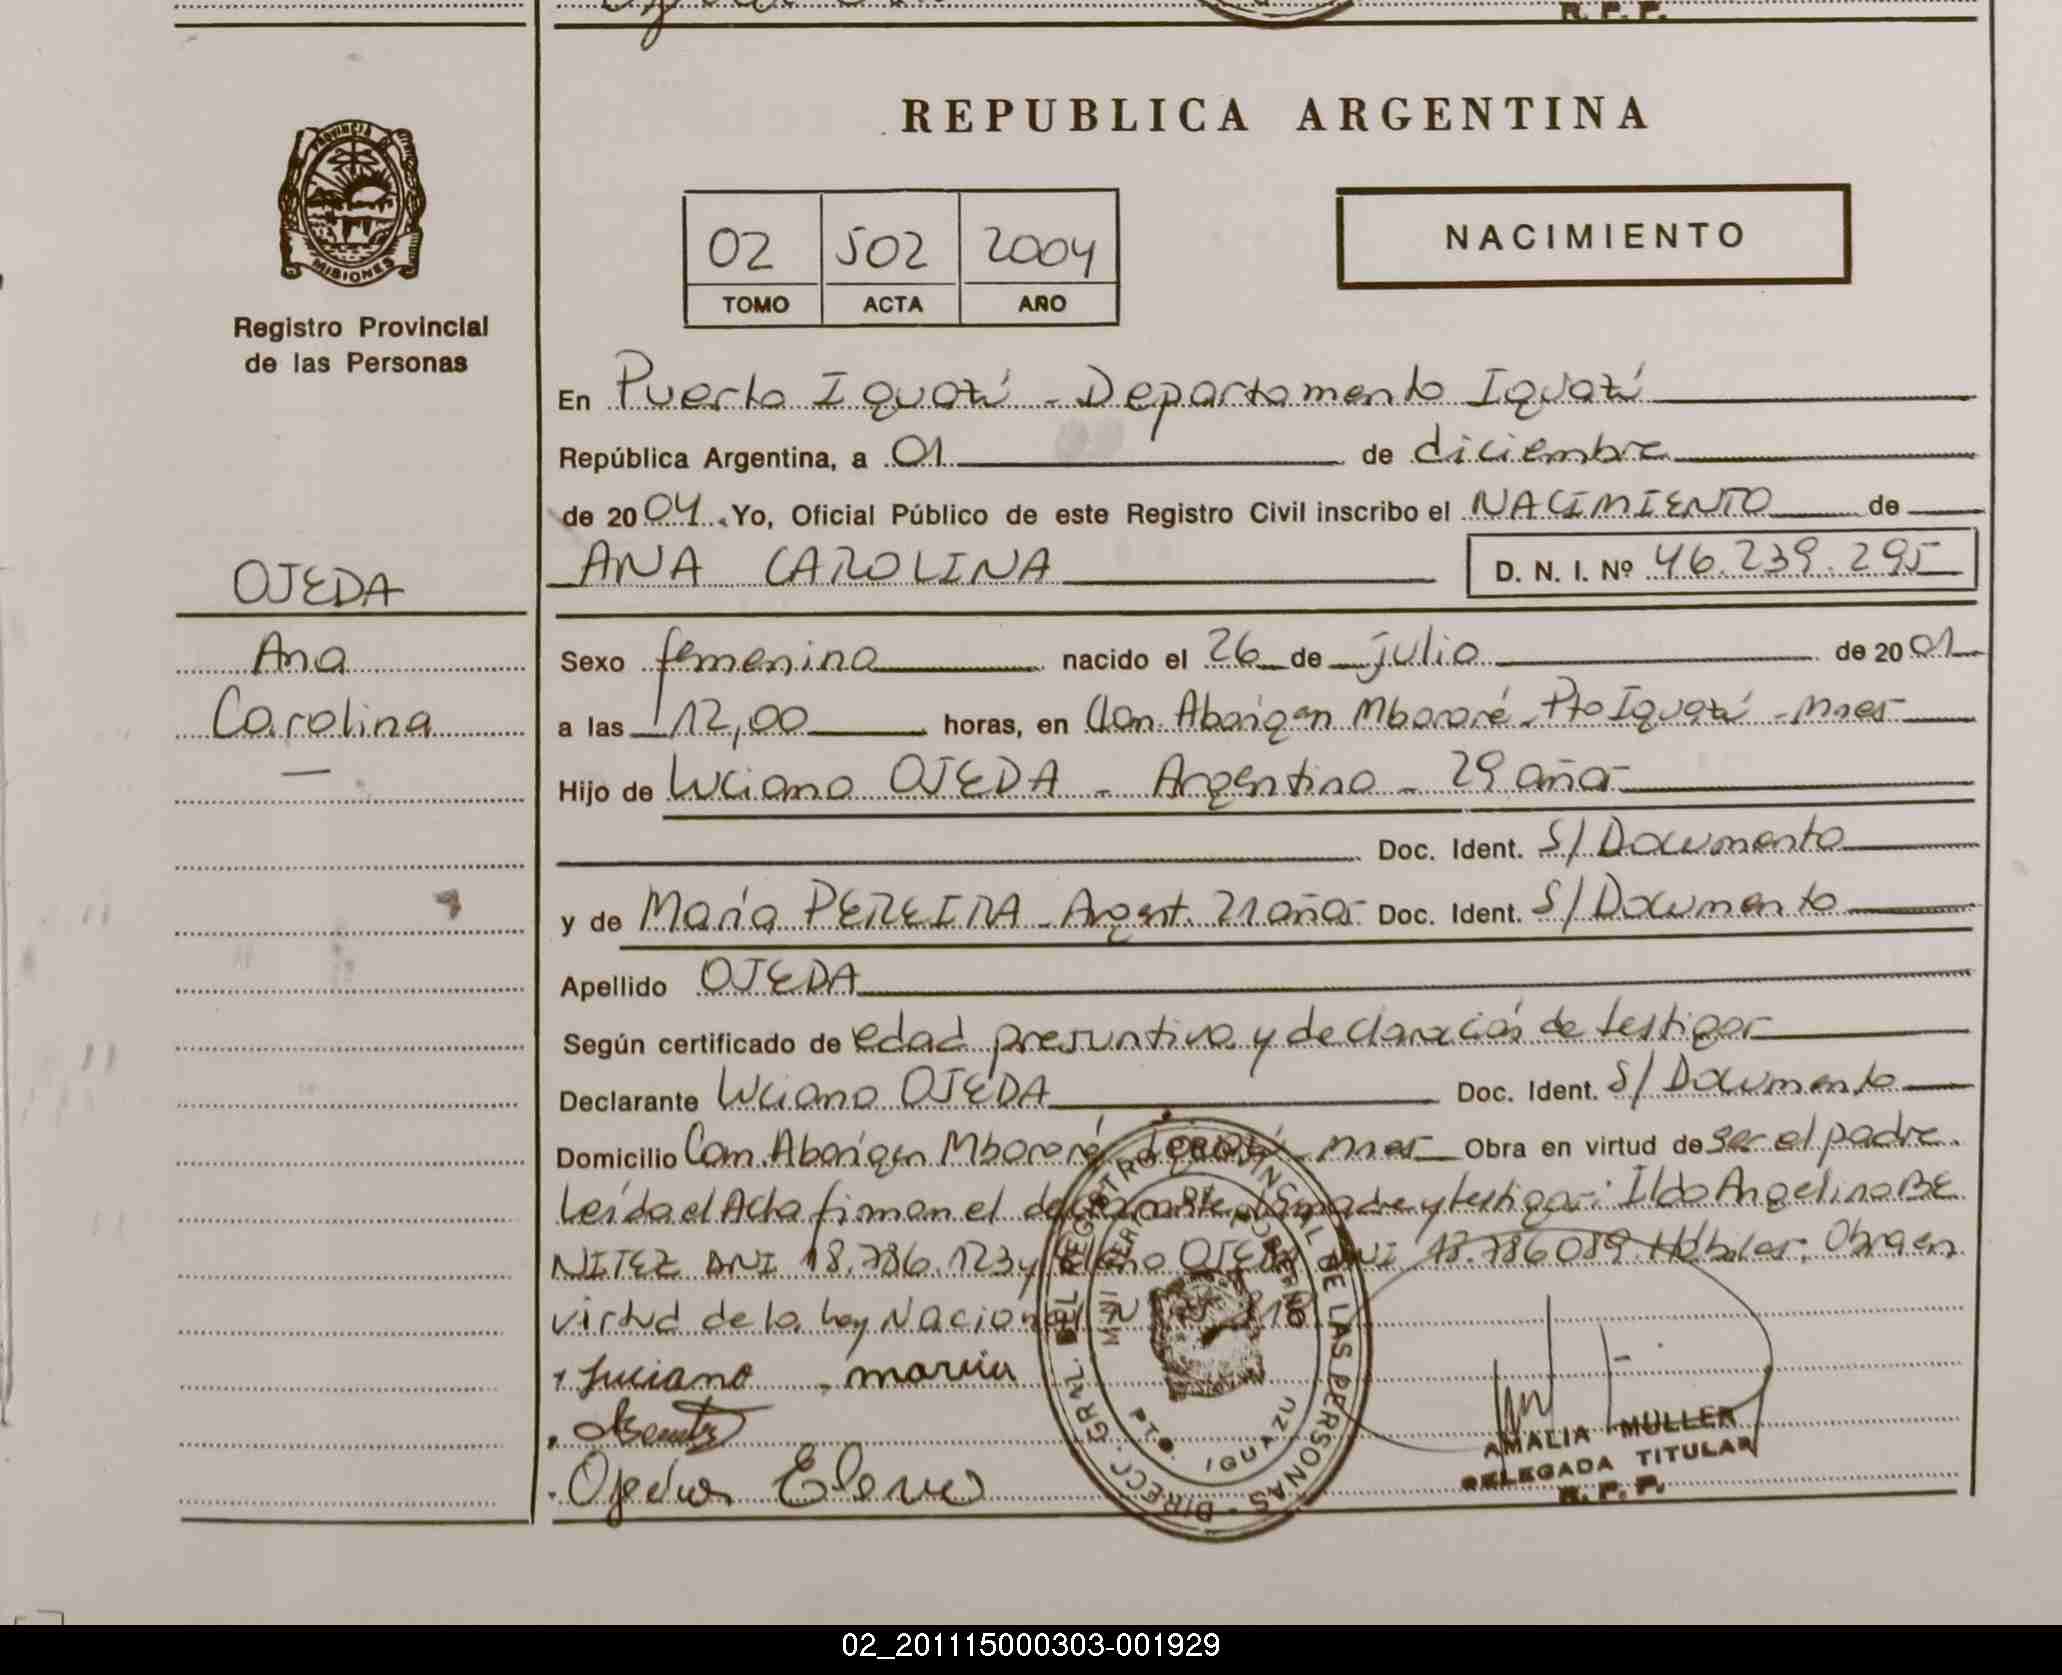 R. P. P.
REPUBLICA ARGENTINA
PROVINCIA DE
MISIONES
Registro Provincial
de las Personas
02 502 2004
TOMO ACTA AÑO
NACIMIENTO
En Puerto Iguazú - Departamento Iguazú
República Argentina, a 01 de diciembre
de 2004. Yo, Oficial Público de este Registro Civil inscribo el NACIMIENTO de
OJEDA
ANA CAROLINA D. N. I. Nº 46.239.295
Ana
Carolina
Sexo femenina nacido el 26 de julio de 2001
a las 12,00 horas, en Com. Aborigen Mbororé - Pto Iguazú - Mnes
Hijo de Luciano OJEDA - Argentino - 29 años
Doc. Ident. S/ Documento
y de María PEREIRA - Argent. 21 años Doc. Ident. S/ Documento
Apellido OJEDA
Según certificado de edad presuntiva y declaración de testigos
Declarante Luciano OJEDA Doc. Ident. S/ Documento
Domicilio Com. Aborigen Mbororé Iguazú - Mnes Obra en virtud de ser el padre
Leída el Acta firman el declarante, la madre y testigos: Ilda Angelina BE
NITEZ DNI 18.786.123 y OJEDA DNI 18.786089 Hábiles. Obra en
virtud de la Ley Nacional Nº
Luciano maria
Ojeda Eleno
DIRECC. GRAL. DEL REGISTRO PROVINCIAL DE LAS PERSONAS
MINISTERIO DE GOBIERNO
PTO. IGUAZU
AMALIA MULLER
DELEGADA TITULAR
R. P. P.
02_201115000303-001929